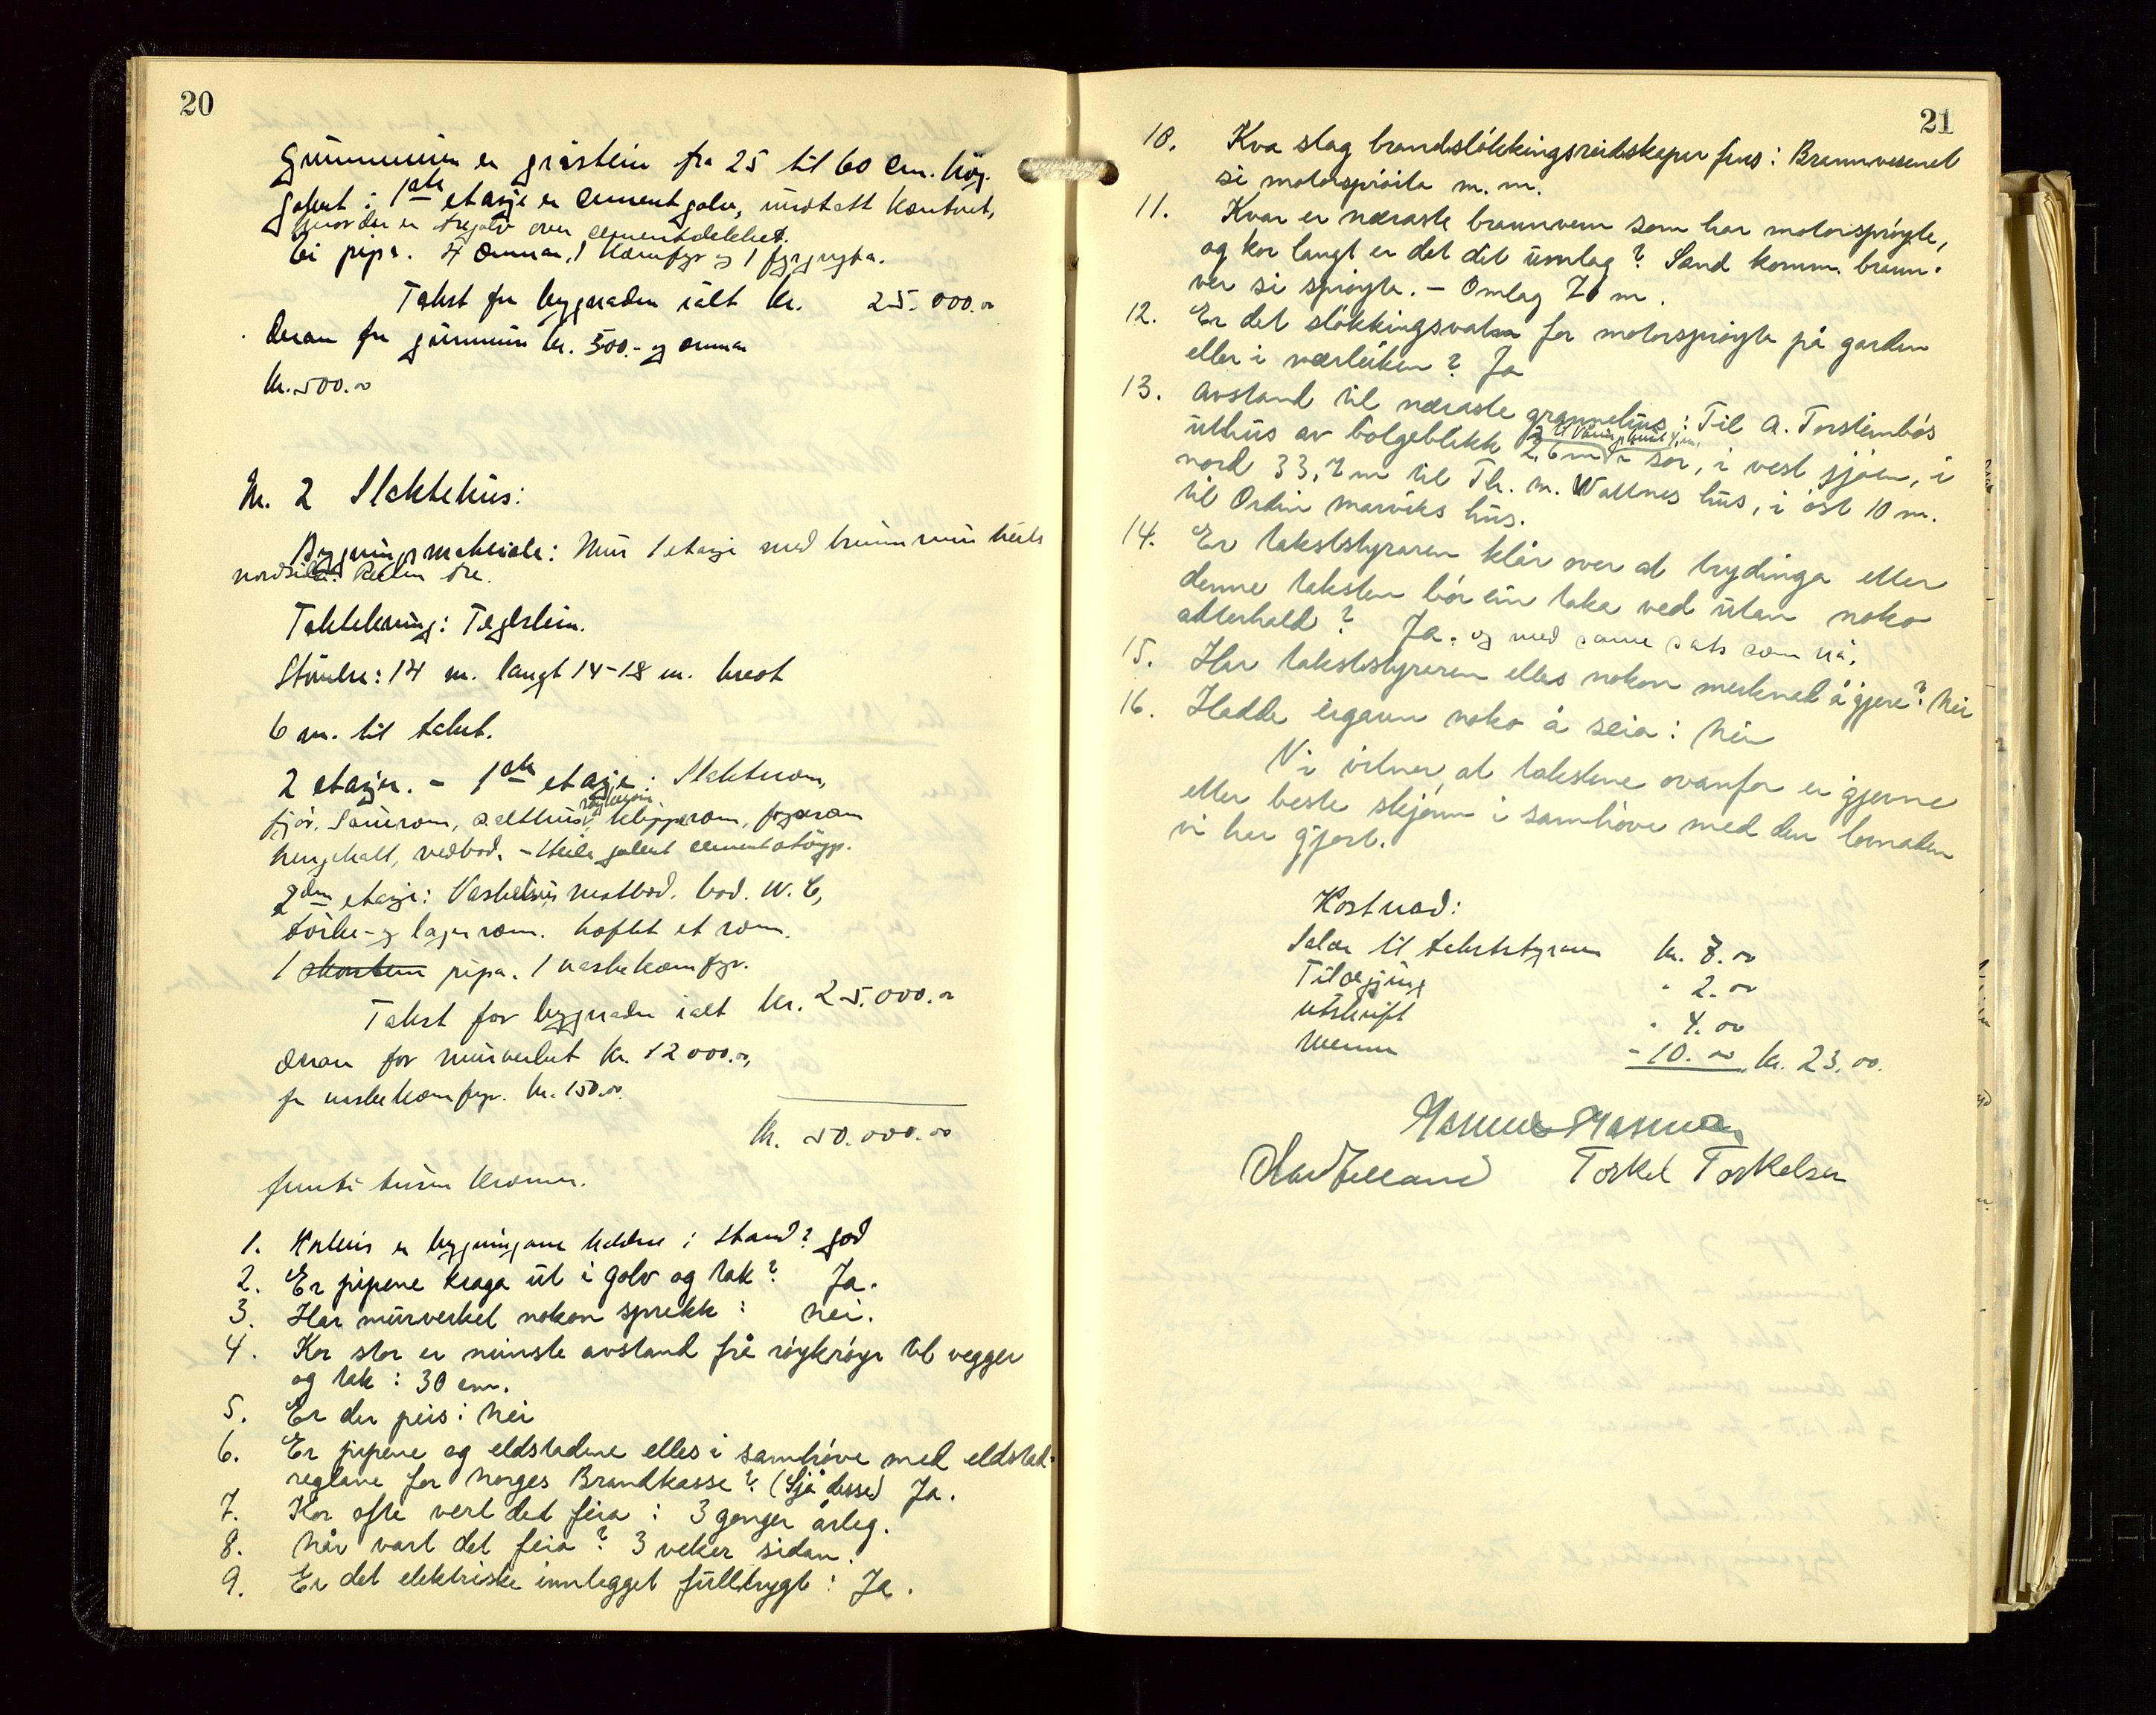 20
Grunnmuren er gråstein fra 25 til 60 cm. høg.
Golvet i 1ste etasje er cementgolv, undtatt kontoret,
hvor der er tregolv over cementdekket.
Ei pipa. 4 omnar, 1 komfyr og 1 fyrgryta.
Takst for bygnaden ialt kr. 25.000.00
Derav for grunnmur kr. 500.- og omnar
kr. 500.00
Nr. 2 Slaktehus:
Bygningsmateriale: Mur 1 etasje med brannmur heile
nordsida. Resten tre.
Taktekning: Teglstein.
Størrelse: 14 m. langt 14-18 m. bredt
6 m. til taket.
2 etasjer. - 1ste etasje: Slakterom,
fjør, rom, salthus, røykeovn klipperom, fryserom
hengehall, vedbod. - Heile golvet cementstøyp.
2den etasje: Vaskehus, matbod. bod. W.C,
tørke- og lagerrom. Loftet et rom.
1 skorstein pipa. 1 vaskekomfyr.
Takst for bygnaden ialt kr. 25.000.00
derav for murverket kr. 12000.00,
for vaskekomfyr. kr. 150.00
kr. 50.000.00
femti tusen kroner.
1. Korleis er bygningane haldne i stand? god
2. Er pipene kraga ut i golv og tak? Ja.
3. Har murverket nokon sprekk: nei.
4. Kor stor er minste avstand frå røykrøyr til vegger
og tak: 30 cm.
5. Er der peis: nei
6. Er pipene og eldstadene elles i samhøve med eldstad-
reglane for Norges Brandkasse? (Sjå desse) Ja.
7. Kor ofte vert det feia: 3 ganger årleg.
8. Når vart det feia? 3 veker sidan.
9. Er det elektriske innlegget fulltrygt: Ja.
21
10. Kva slag brandsløkkingsreidskaper fins: Brannvesenet
si motorsprøita m.m.
11. Kvar er næraste brannvern som har motorsprøyte,
og kor langt er det dit umlag? Sand komm. brann-
ver si sprøyte. - Omlag 70 m.
12. Er det sløkkingsvatn for motorsprøyte på garden
eller i nærleiken? Ja
13. Avstand til næraste grannehus: Til A. Torsteinbøs
uthus av bølgeblikk 2,6 m i sør, i vest sjøen, i
nord 33,7 m til Th. M. Wattnes hus, i øst 10 m.
til Ordin Marviks hus.
14. Er takststyraren klår over at trydinga etter
denne taksten bør ein taka ved utan noko
atterhald? Ja. og med same sats som nå.
15. Har takststyraren elles nokon merknad å gjere? Nei
16. Hadde eigaren noko å seia: Nei
Vi vitner at takstene ovanfor er gjevne
etter beste skjønn i samhøve med den lovnaden
vi har gjort.
Kostnad:
Salær til takststyraren kr. 7.00
Tilsegjing " 2.00
utskrift " 4.00
Menn - 10.00 kr. 23.00.
Torkel Torkelsen